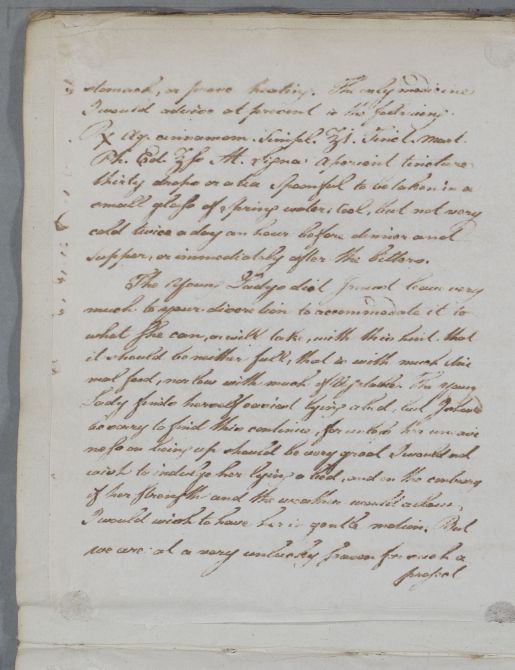 stomach, or prove heating. The only medicine
I would advise at present is the following
℞ Aq. cinnamom. simpl. ʒi. Tinct. mart.
Ph. Ed. M. Signa. Aperient tincture
thirty drops or a tea spoonful to be taken in a
small glass of spring water, cool, but not very
cold twice a day an hour before dinner and
supper, or immediately after the bitters.
The Young Ladys diet I must leave very
much to your discretion to accommodate it to
what she can, or will take, with this hint that
it should be neither full, that is with much ani
mal food, nor low with much of Vegetable. The young
Lady finds herself easiest lying abed, but I should
be sorry to find this continue, for unless her uneasi
ness on being up should be very great I would not
wish to indulge her lying a bed, and on the contrary
if her strength and the weather would allow
I would wish to have her in gentle motion. But
we are at a very unlucky season for such a
project